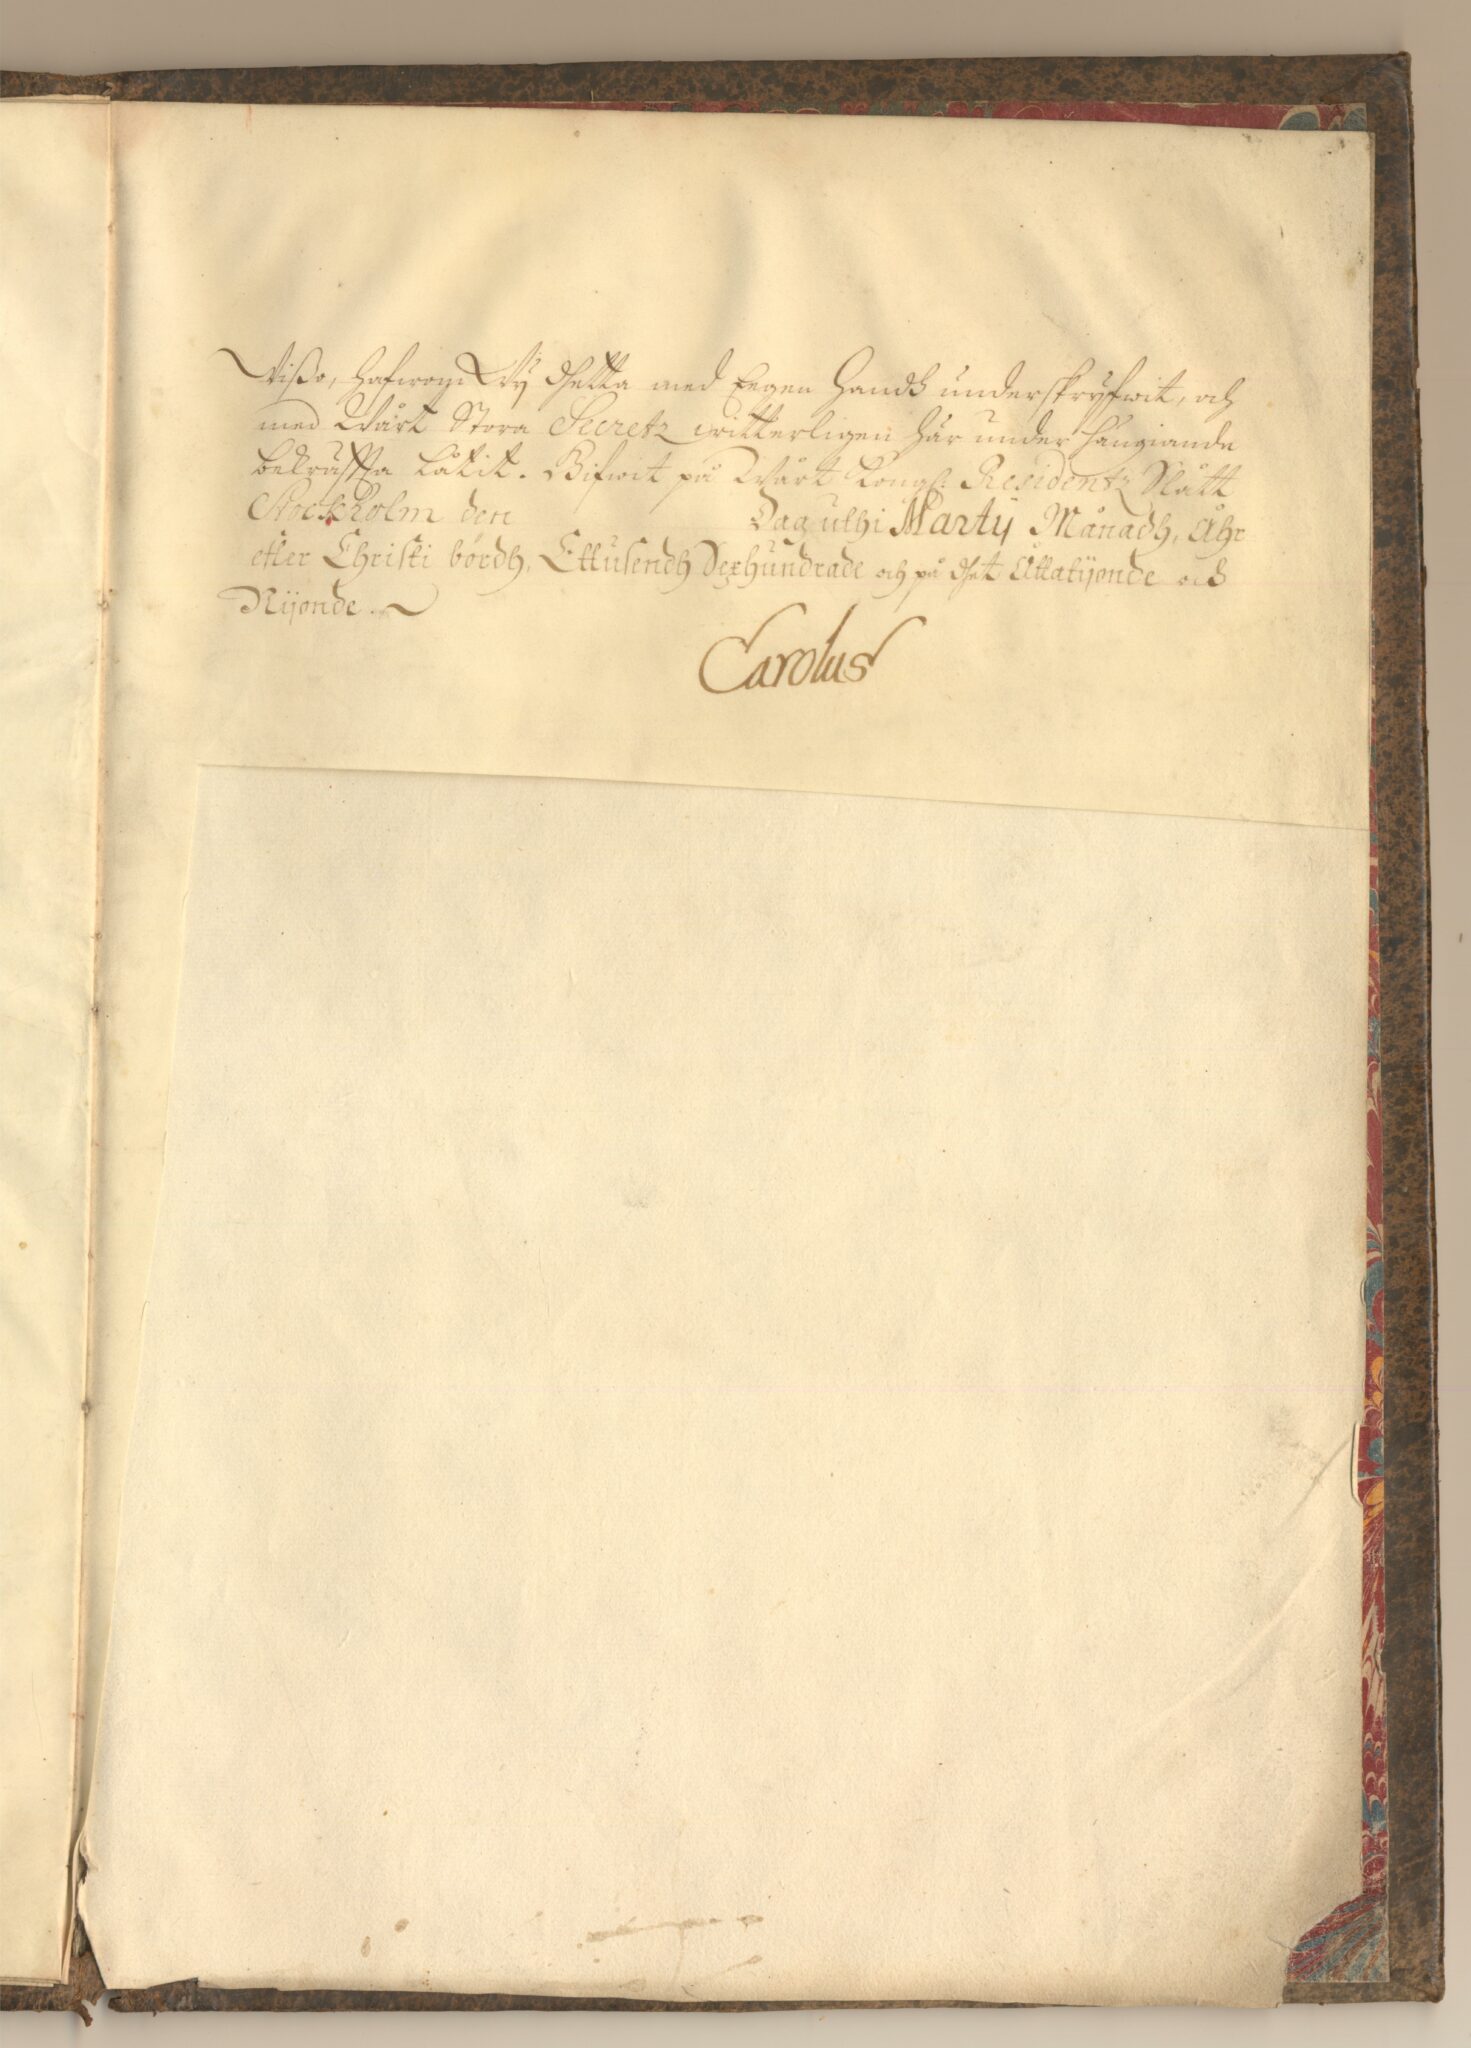 Wißo, hafwom Wÿ dhetta med Eegen Handh underskryfwit, och
med Wårt Stora Secretz witterligen här under hängiande
bekräfta låtit. Gifwit på Wårt Kongl: Residentz Slått
Stockholm den Dag uthi Martÿ Månadh, Åhr
efter Christi bördh, Ettusendh Sexhundrade och på dhet Åttatÿonde och
Nÿonde.
Carolus